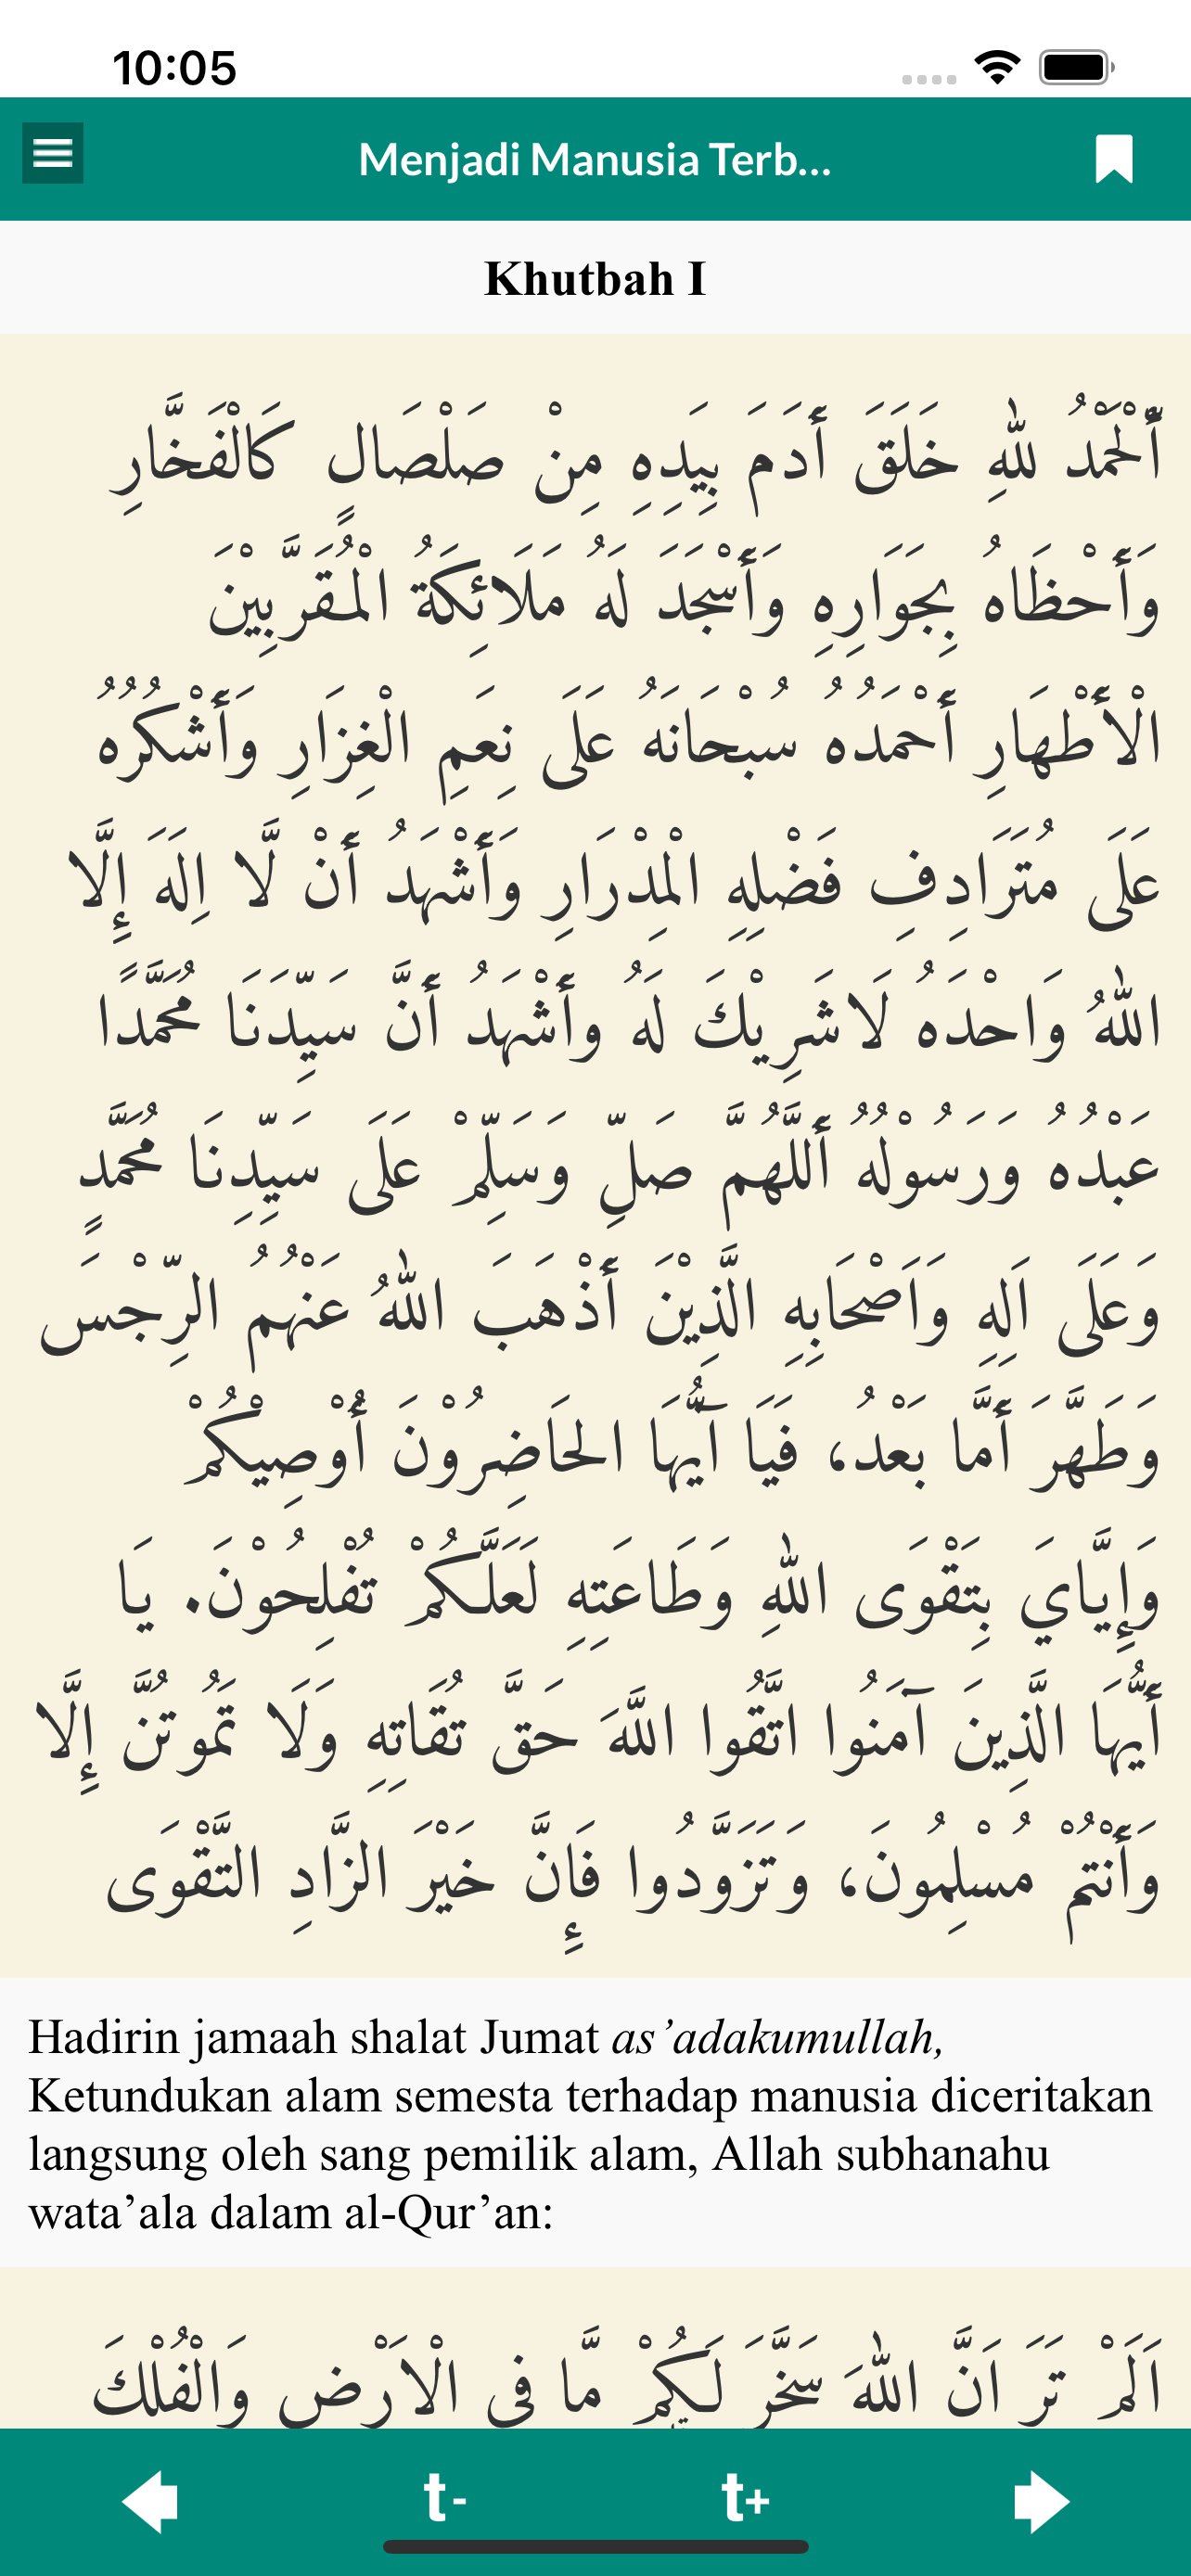 10:05
Menjadi Manusia Terb...
Khutbah I
أَلْحَمْدُ للهِ خَلَقَ أَدَمَ بِيَدِهِ مِنْ صَلْصَالٍ كَالْفَخَّارِ
وَأَحْظَاهُ بِجَوَارِهِ وَأَسْجَدَ لَهُ مَلَائِكَةُ الْمُقَرَّبِيْنَ
الْأَطْهَارِ أَحْمَدُهُ سُبْحَانَهُ عَلَى نِعَمِ الْغِزَارِ وَأَشْكُرُهُ
عَلَى مُتَرَادِفِ فَضْلِهِ الْمِدْرَارِ وَأَشْهَدُ أَنْ لَّا اِلَهَ إِلَّا
اللهُ وَاحْدَهُ لَاشَرِيْكَ لَهُ وأَشْهَدُ أَنَّ سَيِّدَنَا مُحَمَّدًا
عَبْدُهُ وَرَسُوْلُهُ أَللَّهُمَّ صَلِّ وَسَلِّمْ عَلَى سَيِّدِنَا مُحَمَّدٍ
وَعَلَى اَلِهِ وَاَصْحَابِهِ الَّذِيْنَ أَذْهَبَ اللهُ عَنْهُمُ الرِّجْسَ
وَطَهَّرَ أَمَّا بَعْدُ، فَيَا آيُّهَا الحَاضِرُوْنَ أُوْصِيْكُمْ
وَإِيَّايَ بِتَقْوَى اللهِ وَطَاعَتِهِ لَعَلَّكُمْ تُفْلِحُوْنَ. يَا
أَيُّهَا الَّذِينَ آمَنُوا اتَّقُوا اللَّهَ حَقَّ تُقَاتِهِ وَلَا تَمُوتُنَّ إِلَّا
وَأَنْتُمْ مُسْلِمُونَ، وَتَزَوَّدُوا فَإِنَّ خَيْرَ الزَّادِ التَّقْوَى
Hadirin jamaah shalat Jumat as’adakumullah,
Ketundukan alam semesta terhadap manusia diceritakan
langsung oleh sang pemilik alam, Allah subhanahu
wata’ala dalam al-Qur’an:
اَلَمْ تَرَ اَنَّ اللهَ سَخَّرَ لَكُمْ مَّا فِى الْاَرْضِ وَالْفُلْكَ
t-
t+